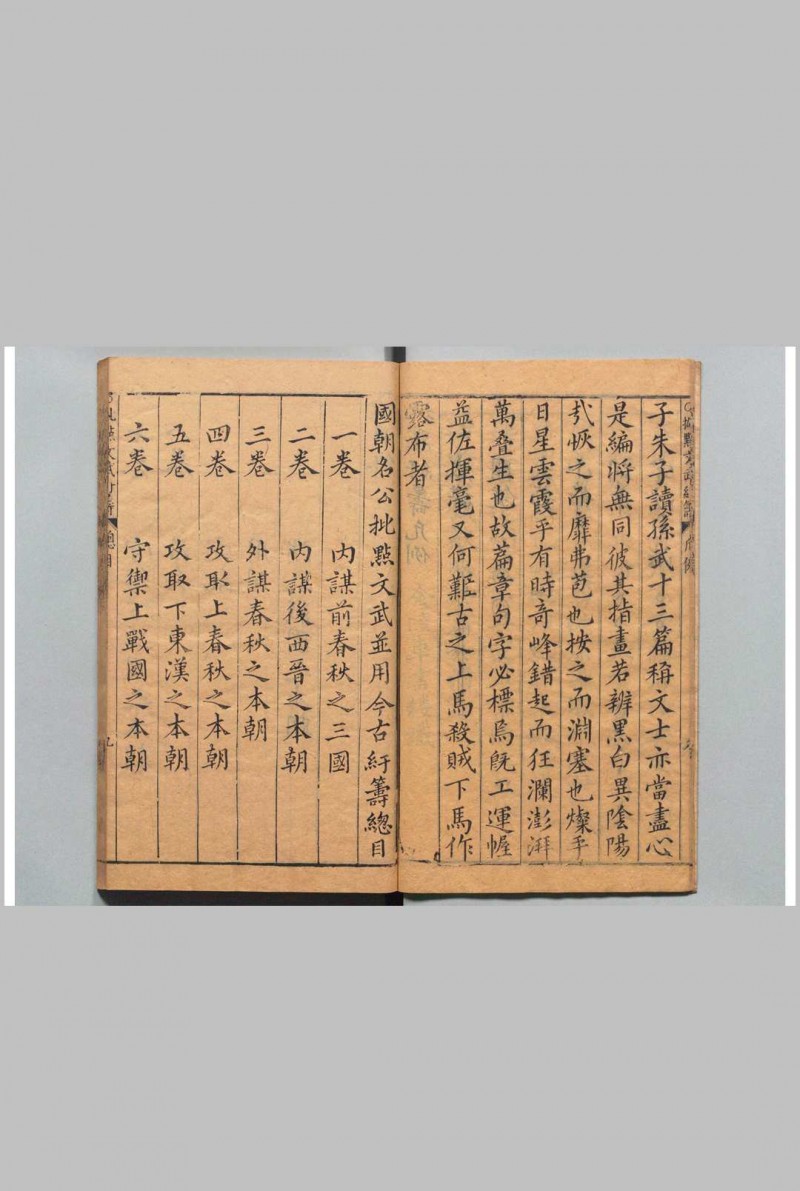 子朱子讀孫武十三篇稱文士亦當盡心
是編將無同彼其指畫若辨黑白異陰陽
弋恢之而靡弗苞也按之而淵塞也燦乎
日星雲霞乎有時奇峰錯起而狂瀾澎湃
萬叠生也故篇章句字必標焉旣工運幄
益佐揮毫又何難古之上馬殺賊下馬作
露布者
凡例
國朝名公批點文武並用今古紆籌總目
一卷 內謀前春秋之三國
二卷 內謀後西晉之本朝
三卷 外謀春秋之本朝
四卷 攻取上春秋之本朝
五卷 攻取下東漢之本朝
六卷 守禦上戰國之本朝
總目
九